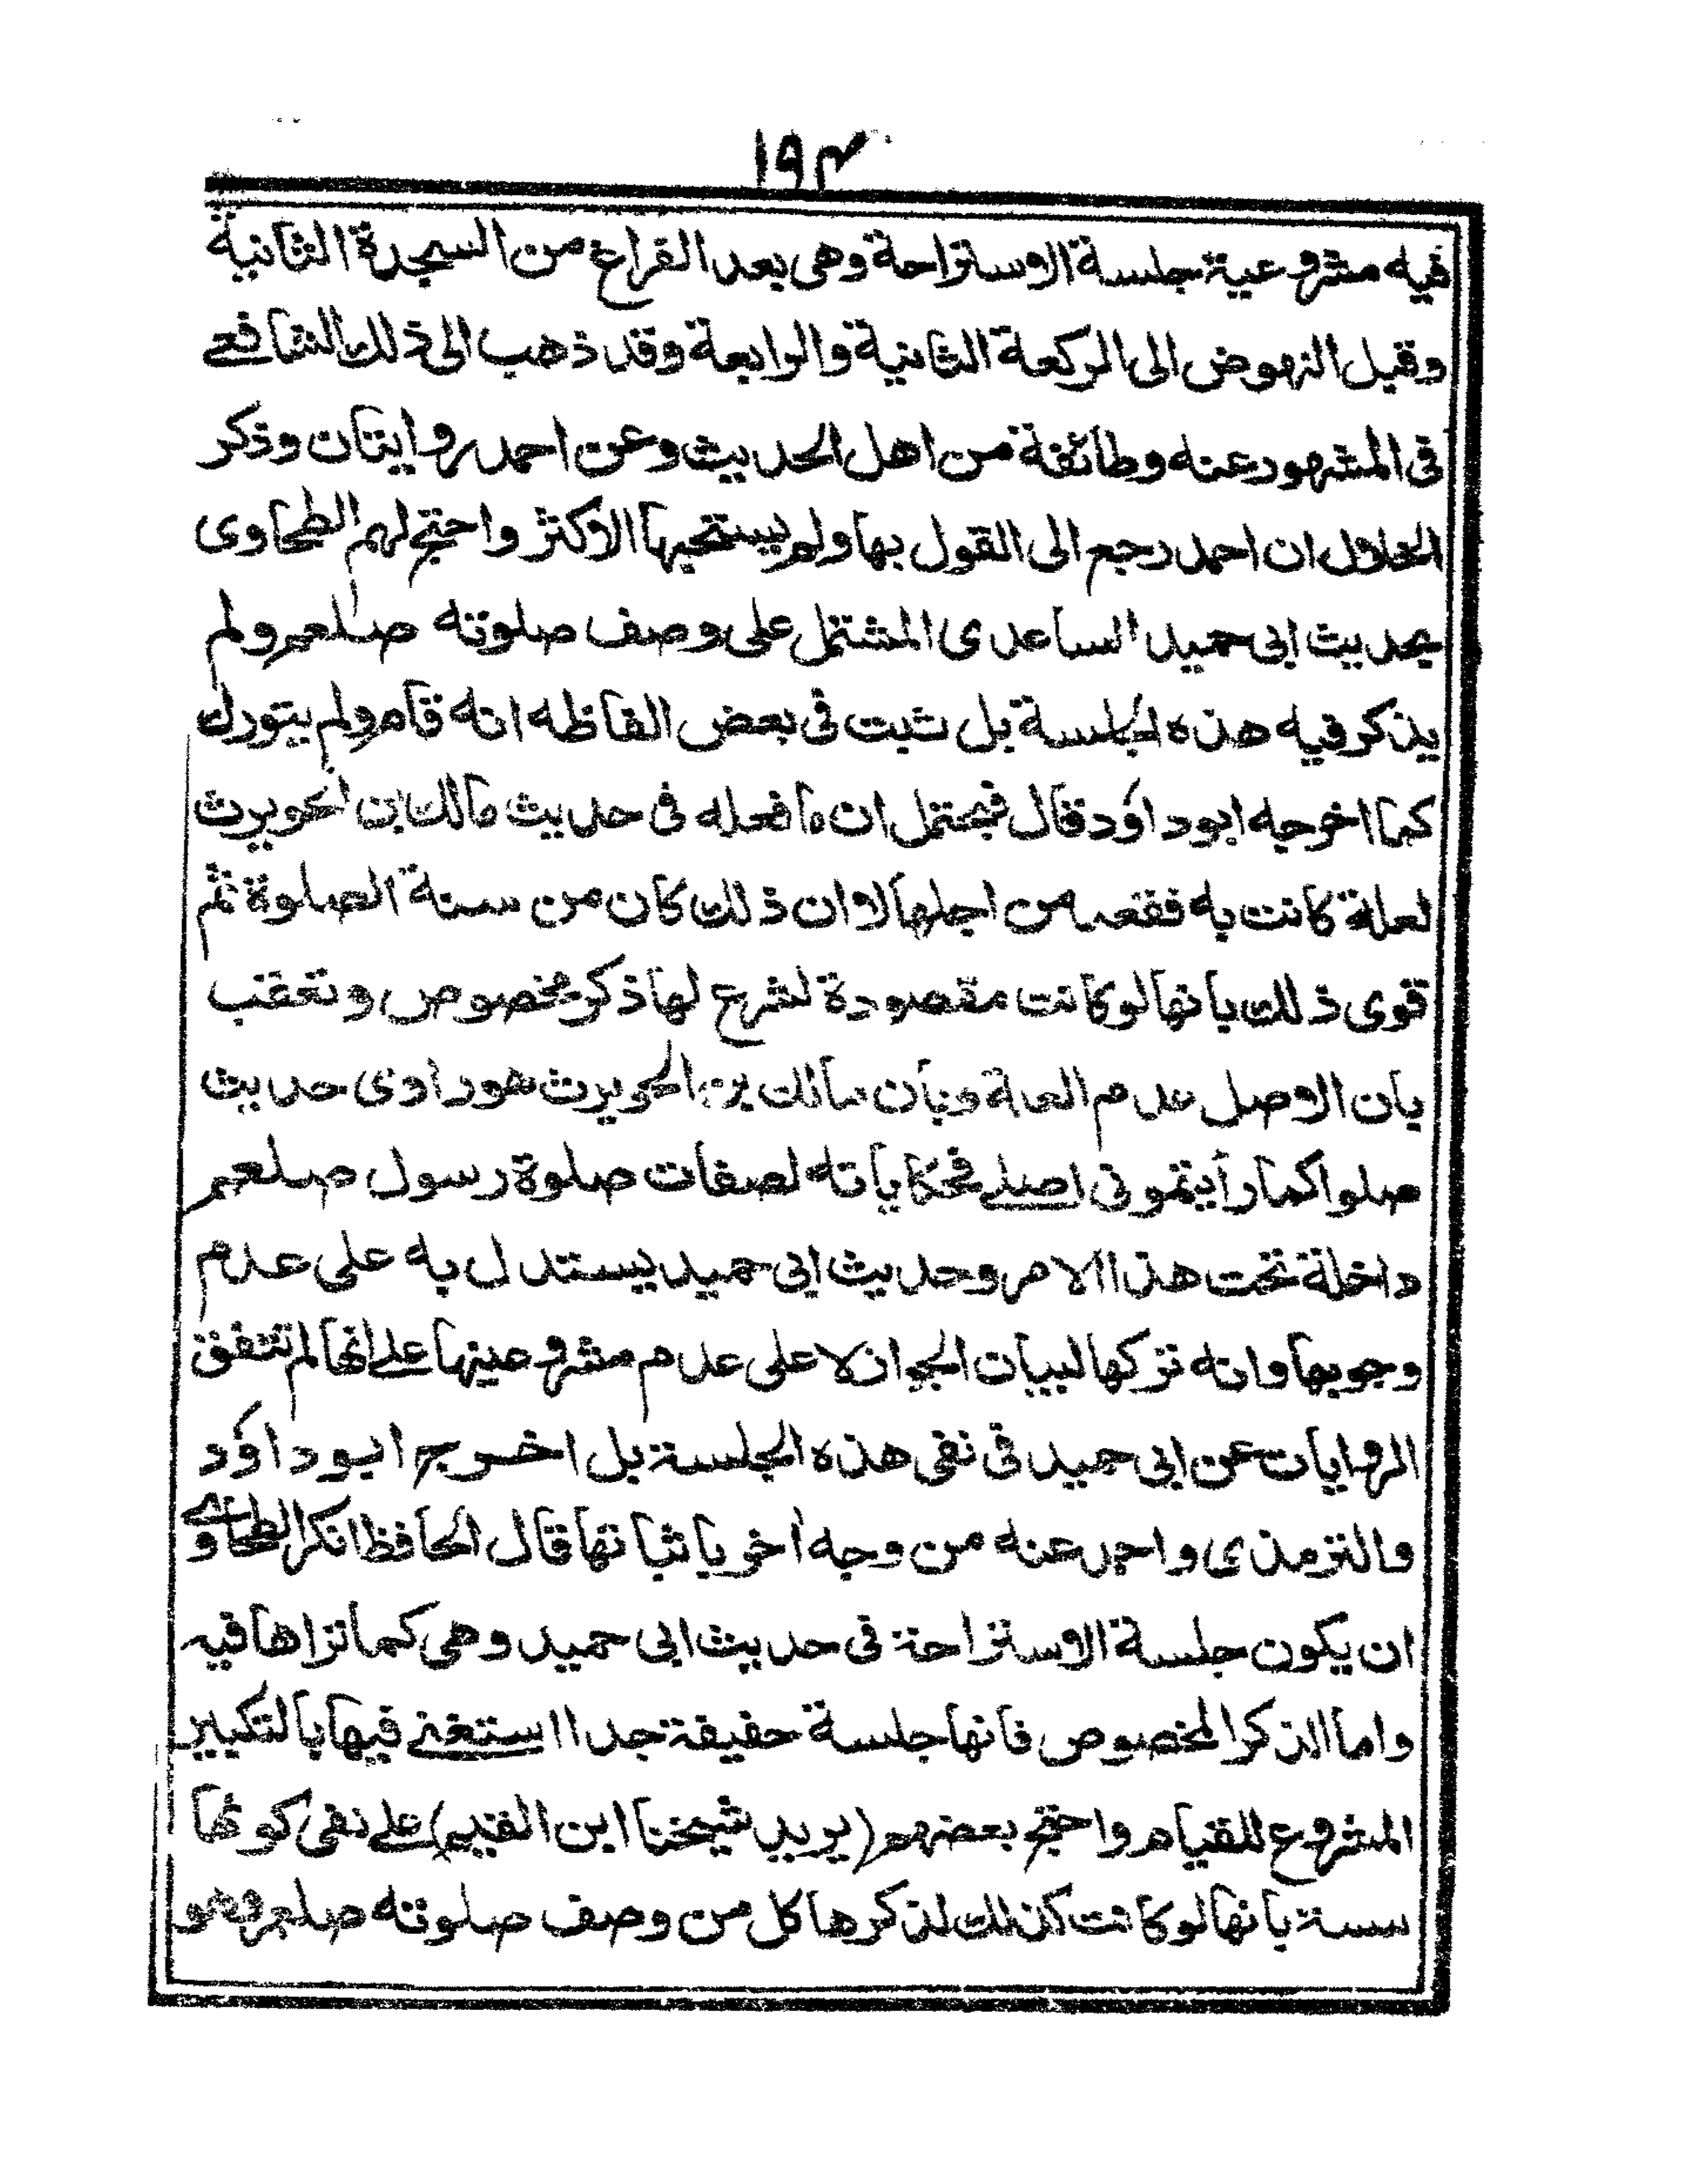 ١٩٣
فيه مشروعية جلسة الاستراحة وهى بعد الفراغ من السجدة الثانية
وقبل النهوض الى الركعة الثانية والرابعة وقد ذهب الى ذلك الشافعى
فى المشهور عنه وطائفة من اهل الحديث وعن احمد روايتان وذكر
الخلال ان احمد رجع الى القول بها ولم يستحبها الاكثر واحتج لهم الطحاوى
بحديث ابى حميد الساعدى المشتمل على وصف صلوته صلعم ولم
يذكر فيه هذه الجلسة بل ثبت فى بعض الفاظه انه قام ولم يتورك
كما اخرجه ابوداؤد قال فيحتمل ان ما فعله فى حديث مالك بن الحويرث
لعلة كانت به فقعد من اجلها لا ان ذلك كان من سنة الصلوة ثم
قوى ذلك بانها لو كانت مقصودة لشرع لها ذكر مخصوص وتعقب
بان الاصل عدم العلة وبان مالك بن الحويرث هو راوى حديث
صلوا كما رأيتمونى اصلى فحكاياته لصفات صلوة رسول صلعم
داخلة تحت هذا الامر وحديث ابى حميد يستدل به على عدم
وجوبها وانه تركها لبيان الجواز لا على عدم مشروعيتها على انها لم تتفق
الروايات عن ابى حميد فى نفى هذه الجلسة بل اخرج ابوداؤد
والترمذى واحمد عنه من وجه اخر باثباتها قال الحافظ انكر الطحاوى
ان يكون جلسة الاستراحة فى حديث ابى حميد وهى كما تراها فيه
واما الذكر المخصوص فانها جلسة حقيقة جدا استغنى فيها بالتكبير
المشروع للقيام واحتج بعضهم (يريد شيخنا ابن القيم) على نفى كونها
سنة بانها لو كانت كذلك لذكرها كل من وصف صلوته صلعم وهو